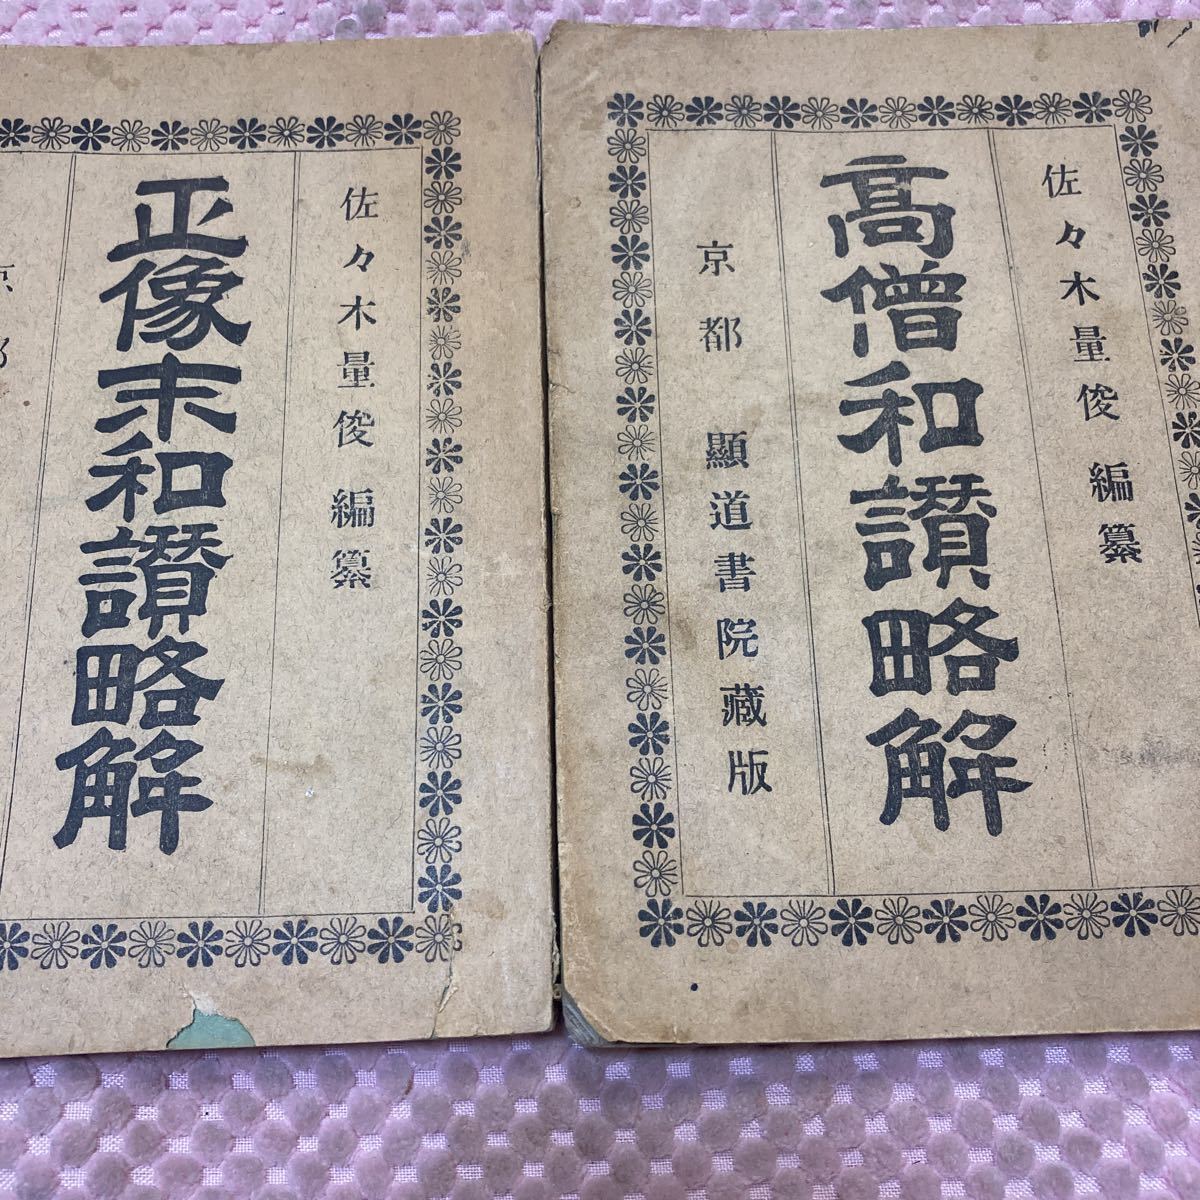 佐々木量俊 編纂
高僧和讃略解
京都 顯道書院藏版
佐々木量俊 編纂
正像末和讃略解
京都